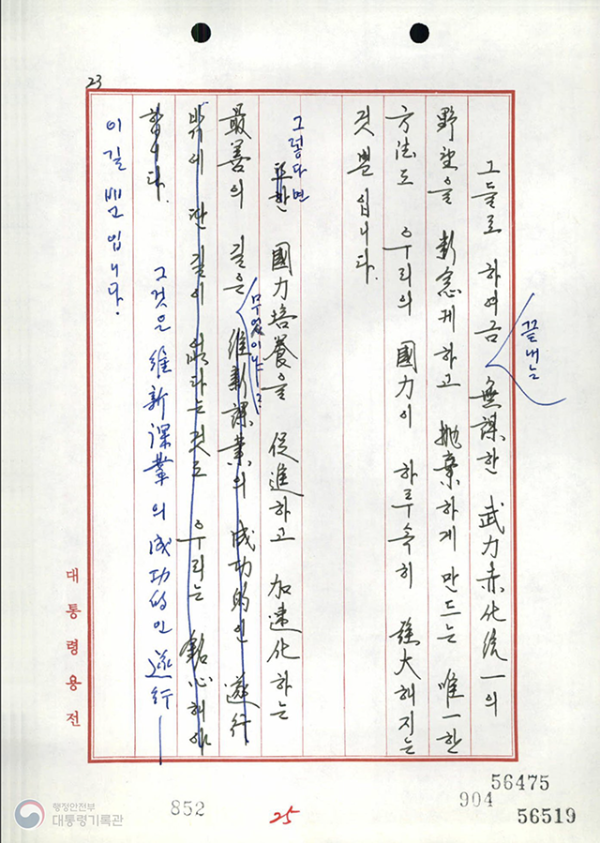 23
그들로 하여금 無謀한 武力赤化統一의
끝내는
野望을 斷念케하고 抛棄하게 만드는 唯一한
方法도 우리의 國力이 하루속히 强大해지는
것 뿐입니다.
그렇다면
또한 國力培養을 促進하고 加速化하는
最善의 길은 維新課業의 成功的인 遂行
무엇이냐?
밖에 딴 길이 없다는 것도 우리는 銘心해야
합니다.
그것은 維新課業의 成功的인 遂行
이 길 뿐입니다.
대통령용전
행정안전부
대통령기록관
852
25
904
56475
56519